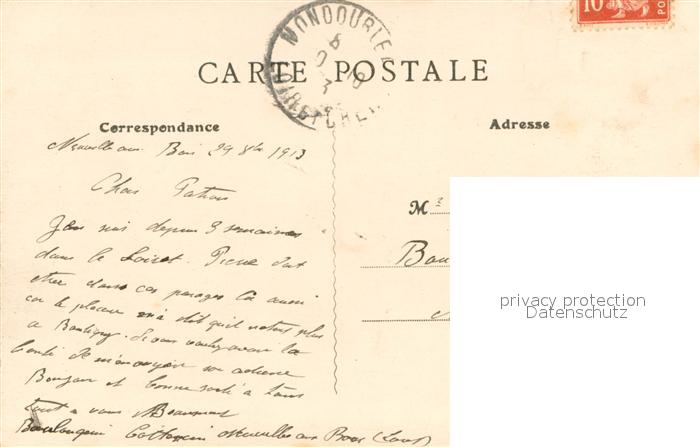 10
MONDOUBLEAU
LOIR-ET-CHER
CARTE POSTALE
Correspondance
Adresse
Neuville aux Bois 29 8bre 1913
Cher Patron
Je suis depuis 3 semaines
dans le Loiret. Pierre doit
être dans ces parages là aussi
car le
m'a dit qu'il n'était plus
a Boutigny. Si vous voulez avoir la
bonté de m'envoyer son adresse
Bonjour et bonne santé à tous
tout a vous Beaumont
Boulangerie Neuville aux Bois (Loiret)
M
Bou
privacy protection
Datenschutz